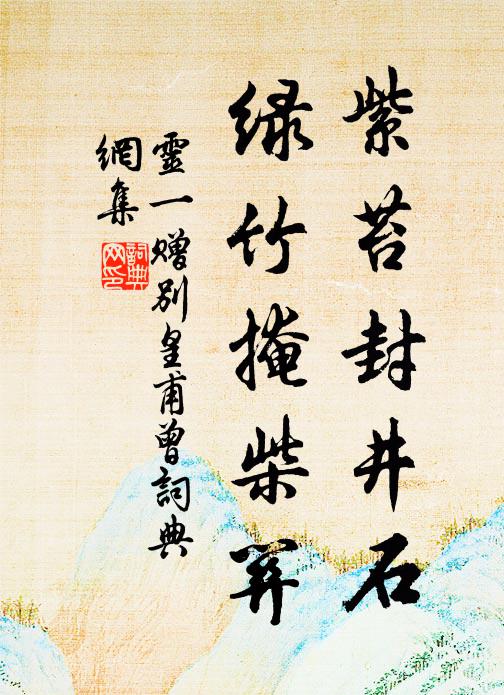 紫苔封井石
绿竹掩柴关
靈一赠别皇甫曾詞典
網集
詞典
网印